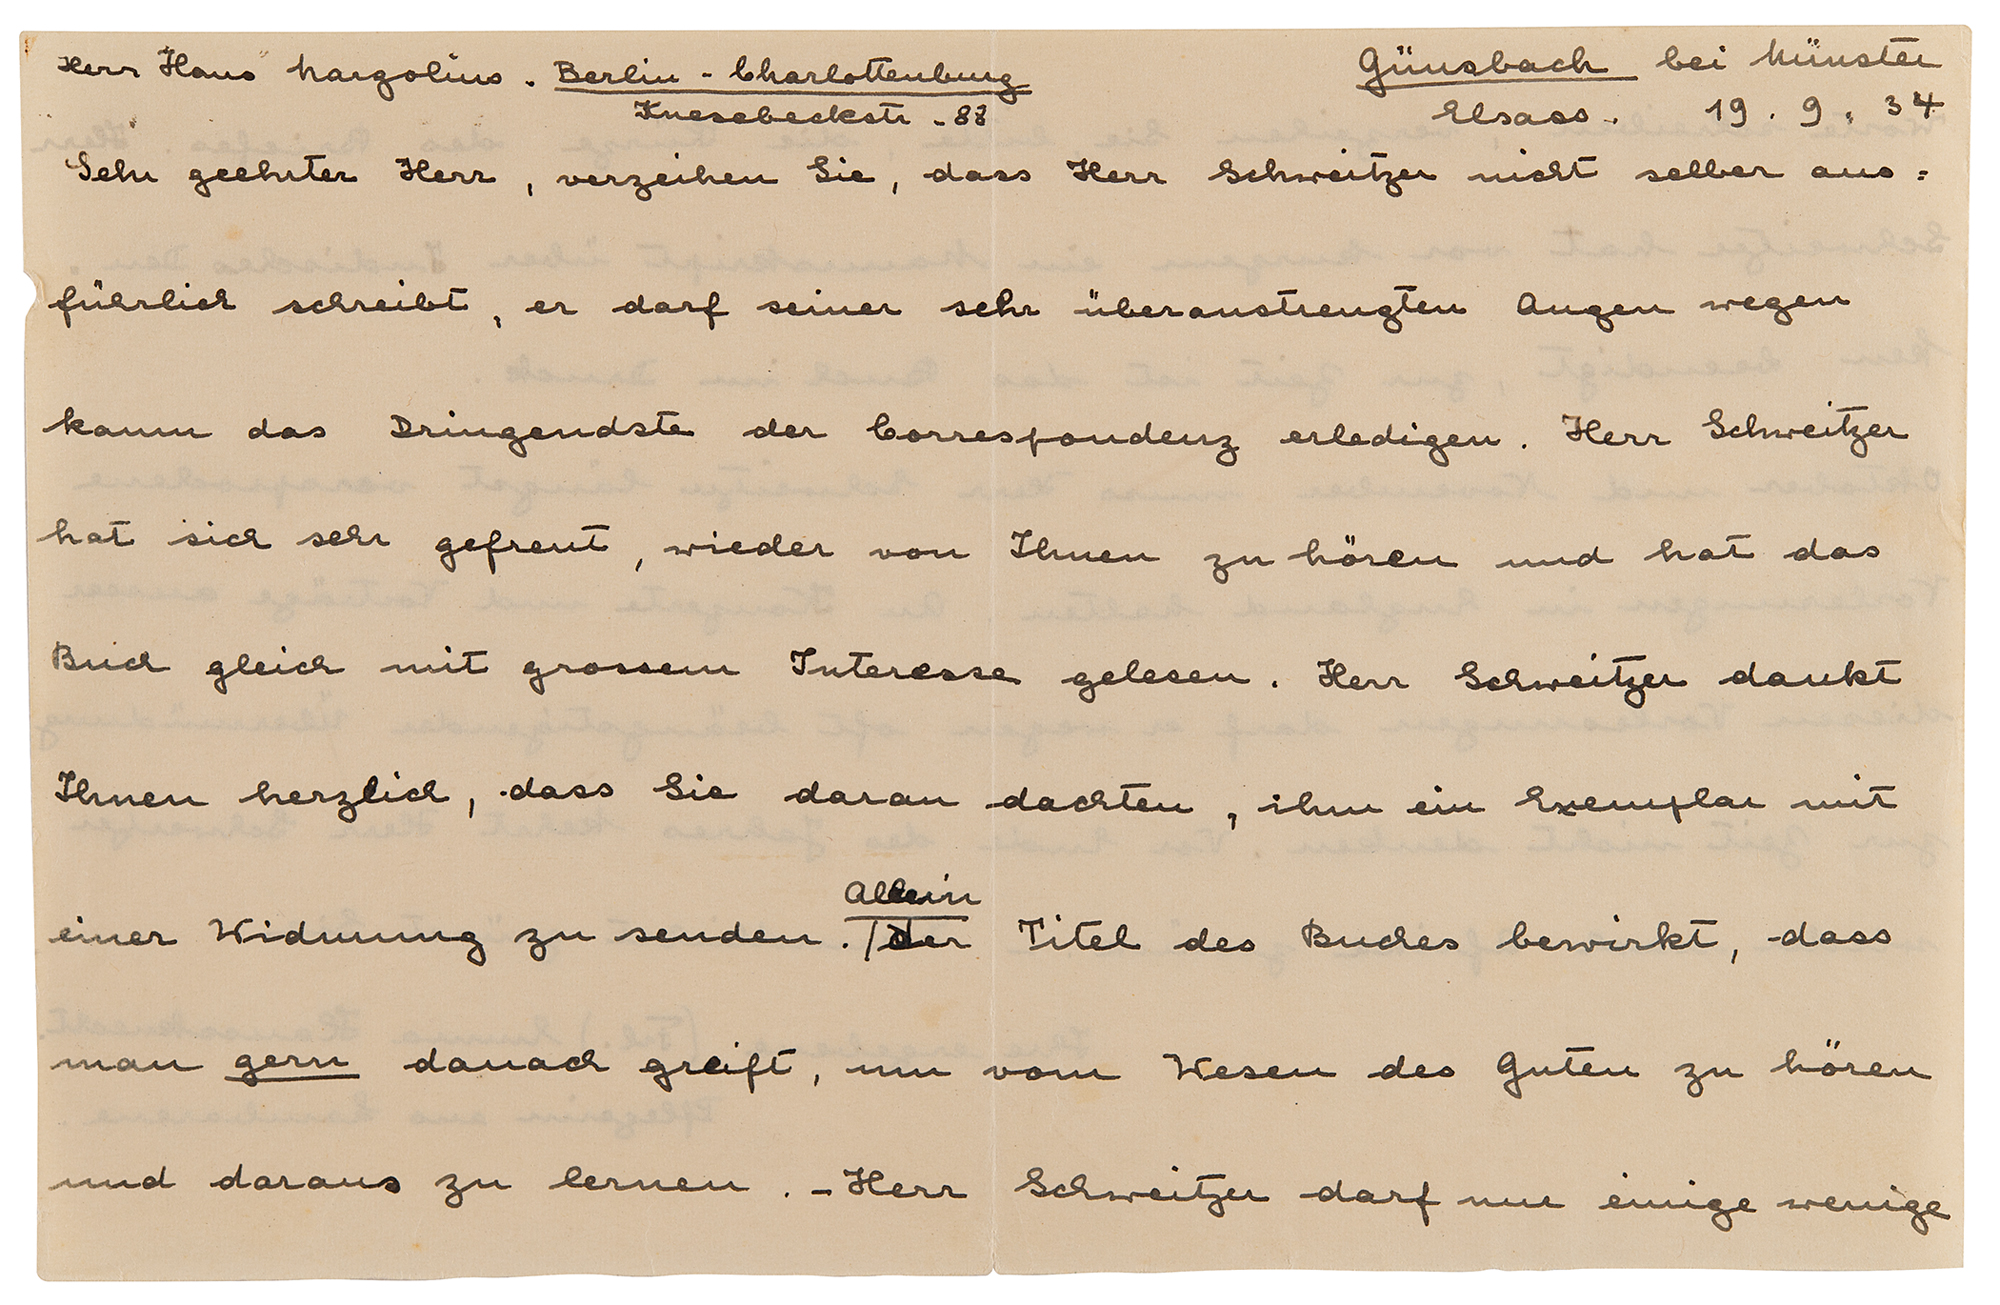 Herr Hans Margolius. Berlin-Charlottenburg
Knesebeckstr. 88
Günsbach bei Münster
Elsass. 19. 9. 34
Sehr geehrter Herr, verzeihen Sie, dass Herr Schweitzer nicht selber aus=
führlich schreibt, er darf seiner sehr überanstrengten Augen wegen
kaum das Dringendste der Correspondenz erledigen. Herr Schweitzer
hat sich sehr gefreut, wieder von Ihnen zu hören und hat das
Buch gleich mit grossem Interesse gelesen. Herr Schweitzer dankt
Ihnen herzlich, dass Sie daran dachten, ihm ein Exemplar mit
Allein
einer Widmung zu senden. / der Titel des Buches bewirkt, dass
man gern danach greift, um vom Wesen des Guten zu hören
und daraus zu lernen. - Herr Schweitzer darf nur einige wenige